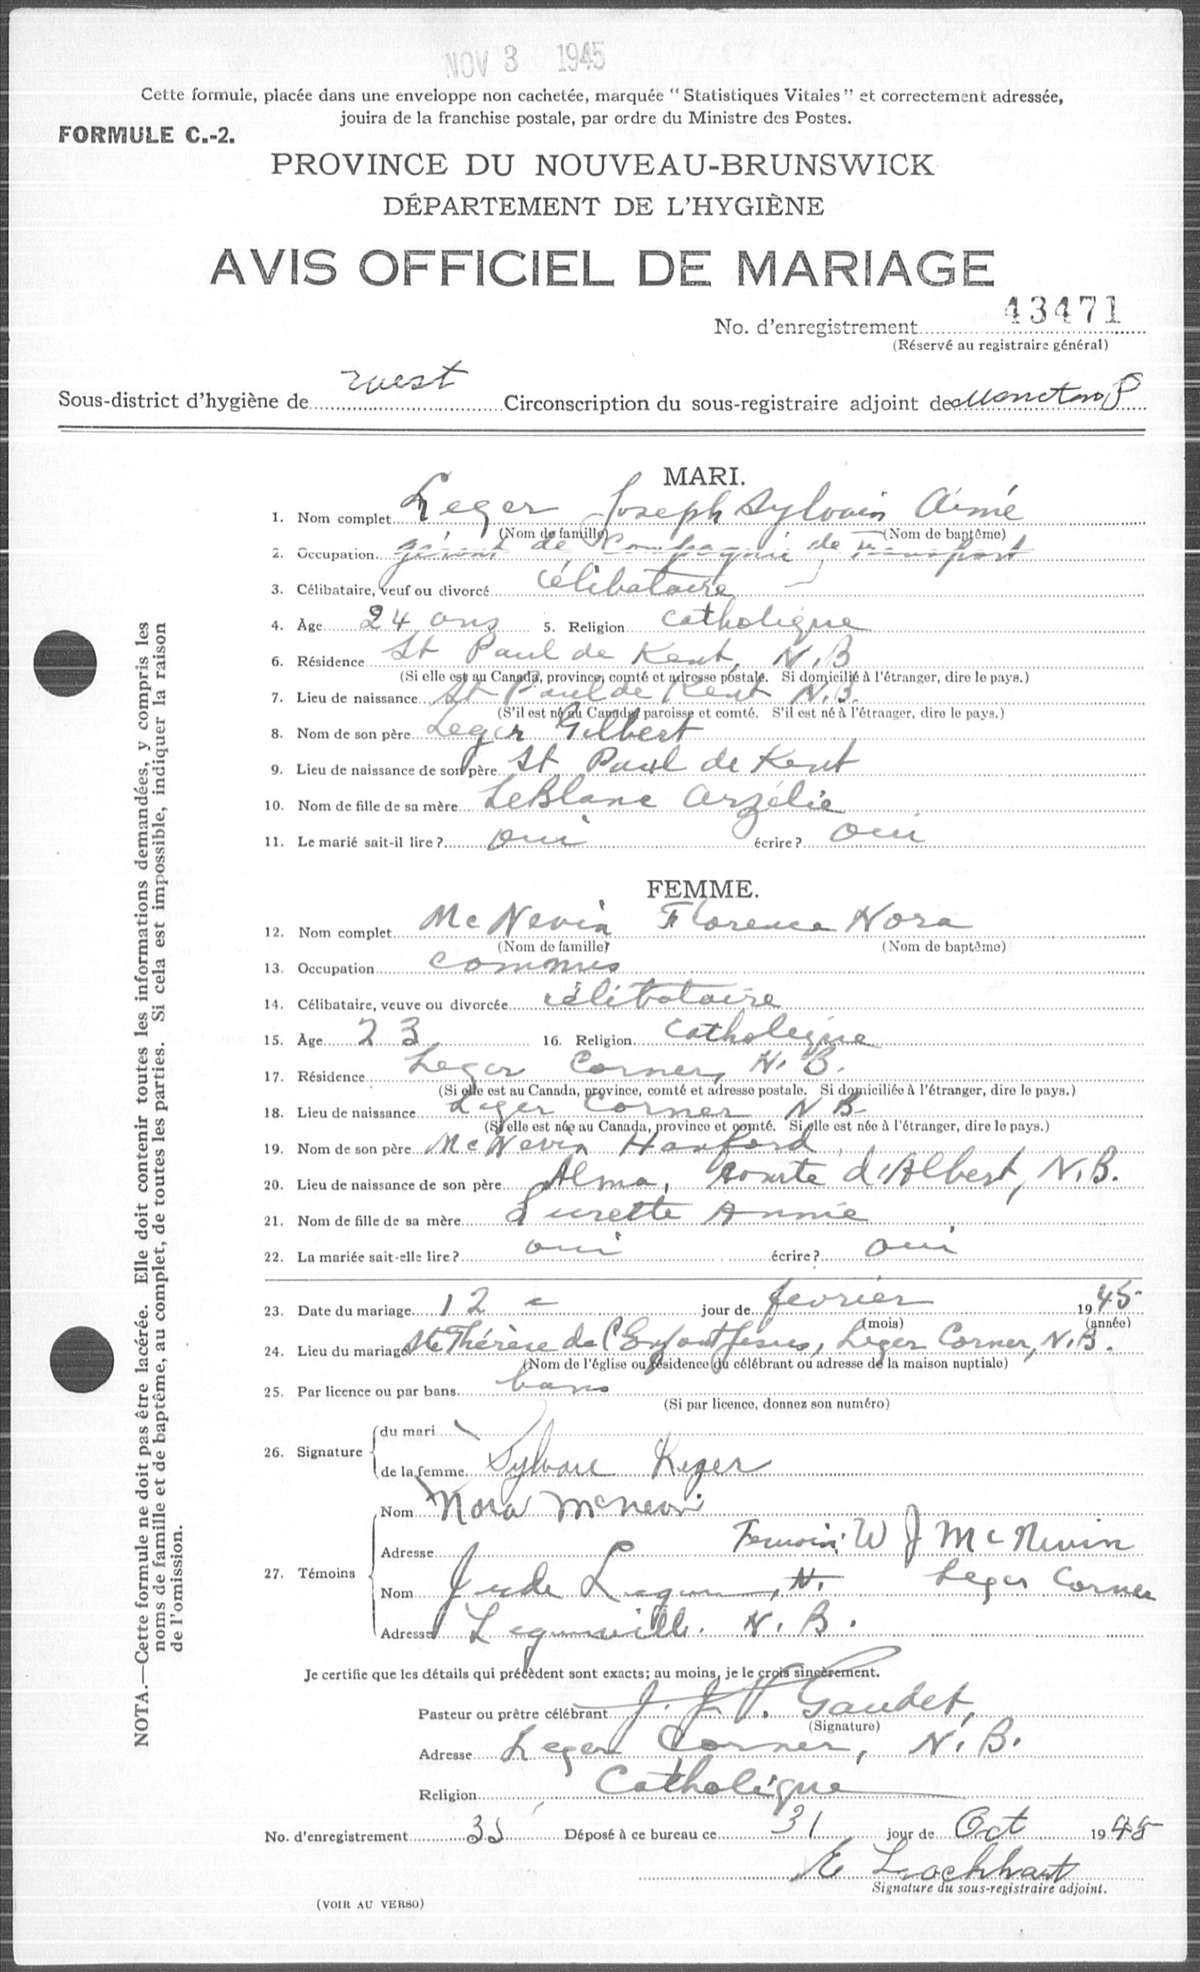 NOV 3 1945
Cette formule, placée dans une enveloppe non cachetée, marquée " Statistiques Vitales " et correctement adressée,
jouira de la franchise postale, par ordre du Ministre des Postes.
FORMULE C.-2.
PROVINCE DU NOUVEAU-BRUNSWICK
DÉPARTEMENT DE L'HYGIÈNE
AVIS OFFICIEL DE MARIAGE
No. d'enregistrement 43471
(Réservé au registraire général)
Sous-district d'hygiène de West Circonscription du sous-registraire adjoint de Moncton P
MARI.
1. Nom complet Leger Joseph Sylvain Aimé
(Nom de famille) (Nom de baptême)
2. Occupation gérant de Compagnie de Transport
3. Célibataire, veuf ou divorcé célibataire
4. Âge 24 ans 5. Religion catholique
6. Résidence St Paul de Kent, N.B
(Si elle est au Canada, province, comté et adresse postale. Si domicilié à l'étranger, dire le pays.)
7. Lieu de naissance St Paul de Kent N.B.
(S'il est né au Canada, paroisse et comté. S'il est né à l'étranger, dire le pays.)
8. Nom de son père Leger Gilbert
9. Lieu de naissance de son père St Paul de Kent
10. Nom de fille de sa mère LeBlanc Arzélie
11. Le marié sait-il lire? oui écrire? oui
FEMME.
12. Nom complet McNevin Florence Nora
(Nom de famille) (Nom de baptême)
13. Occupation commis
14. Célibataire, veuve ou divorcée célibataire
15. Âge 23 16. Religion catholique
17. Résidence Leger Corner, N.B.
(Si elle est au Canada, province, comté et adresse postale. Si domiciliée à l'étranger, dire le pays.)
18. Lieu de naissance Leger Corner N B.
(Si elle est née au Canada, province et comté. Si elle est née à l'étranger, dire le pays.)
19. Nom de son père McNevin Hanford
20. Lieu de naissance de son père Alma, comté d'Albert, N.B.
21. Nom de fille de sa mère Surette Annie
22. La mariée sait-elle lire? oui écrire? oui
23. Date du mariage 12 e jour de février 1945
(mois) (année)
24. Lieu du mariage Ste Thérèse de l'Enfant Jesus, Leger Corner, N.B.
(Nom de l'église ou résidence du célébrant ou adresse de la maison nuptiale)
25. Par licence ou par bans bans
(Si par licence, donnez son numéro)
26. Signature du mari
de la femme Sylvain Leger
Nom Nora McNevin
Adresse Temoin: W J McNevin
27. Témoins
Nom Jude N. Leger Corner
Adresse N. B.
Je certifie que les détails qui précèdent sont exacts; au moins, je le crois sincèrement.
Pasteur ou prêtre célébrant J. J. V. Gaudet,
(Signature)
Adresse Leger Corner, N.B.
Religion Catholique
No. d'enregistrement 35 Déposé à ce bureau ce 31 jour de Oct 1945
E Lockhart
Signature du sous-registraire adjoint.
(VOIR AU VERSO)
NOTA.—Cette formule ne doit pas être lacérée. Elle doit contenir toutes les informations demandées, y compris les
noms de famille et de baptême, au complet, de toutes les parties. Si cela est impossible, indiquer la raison
de l'omission.